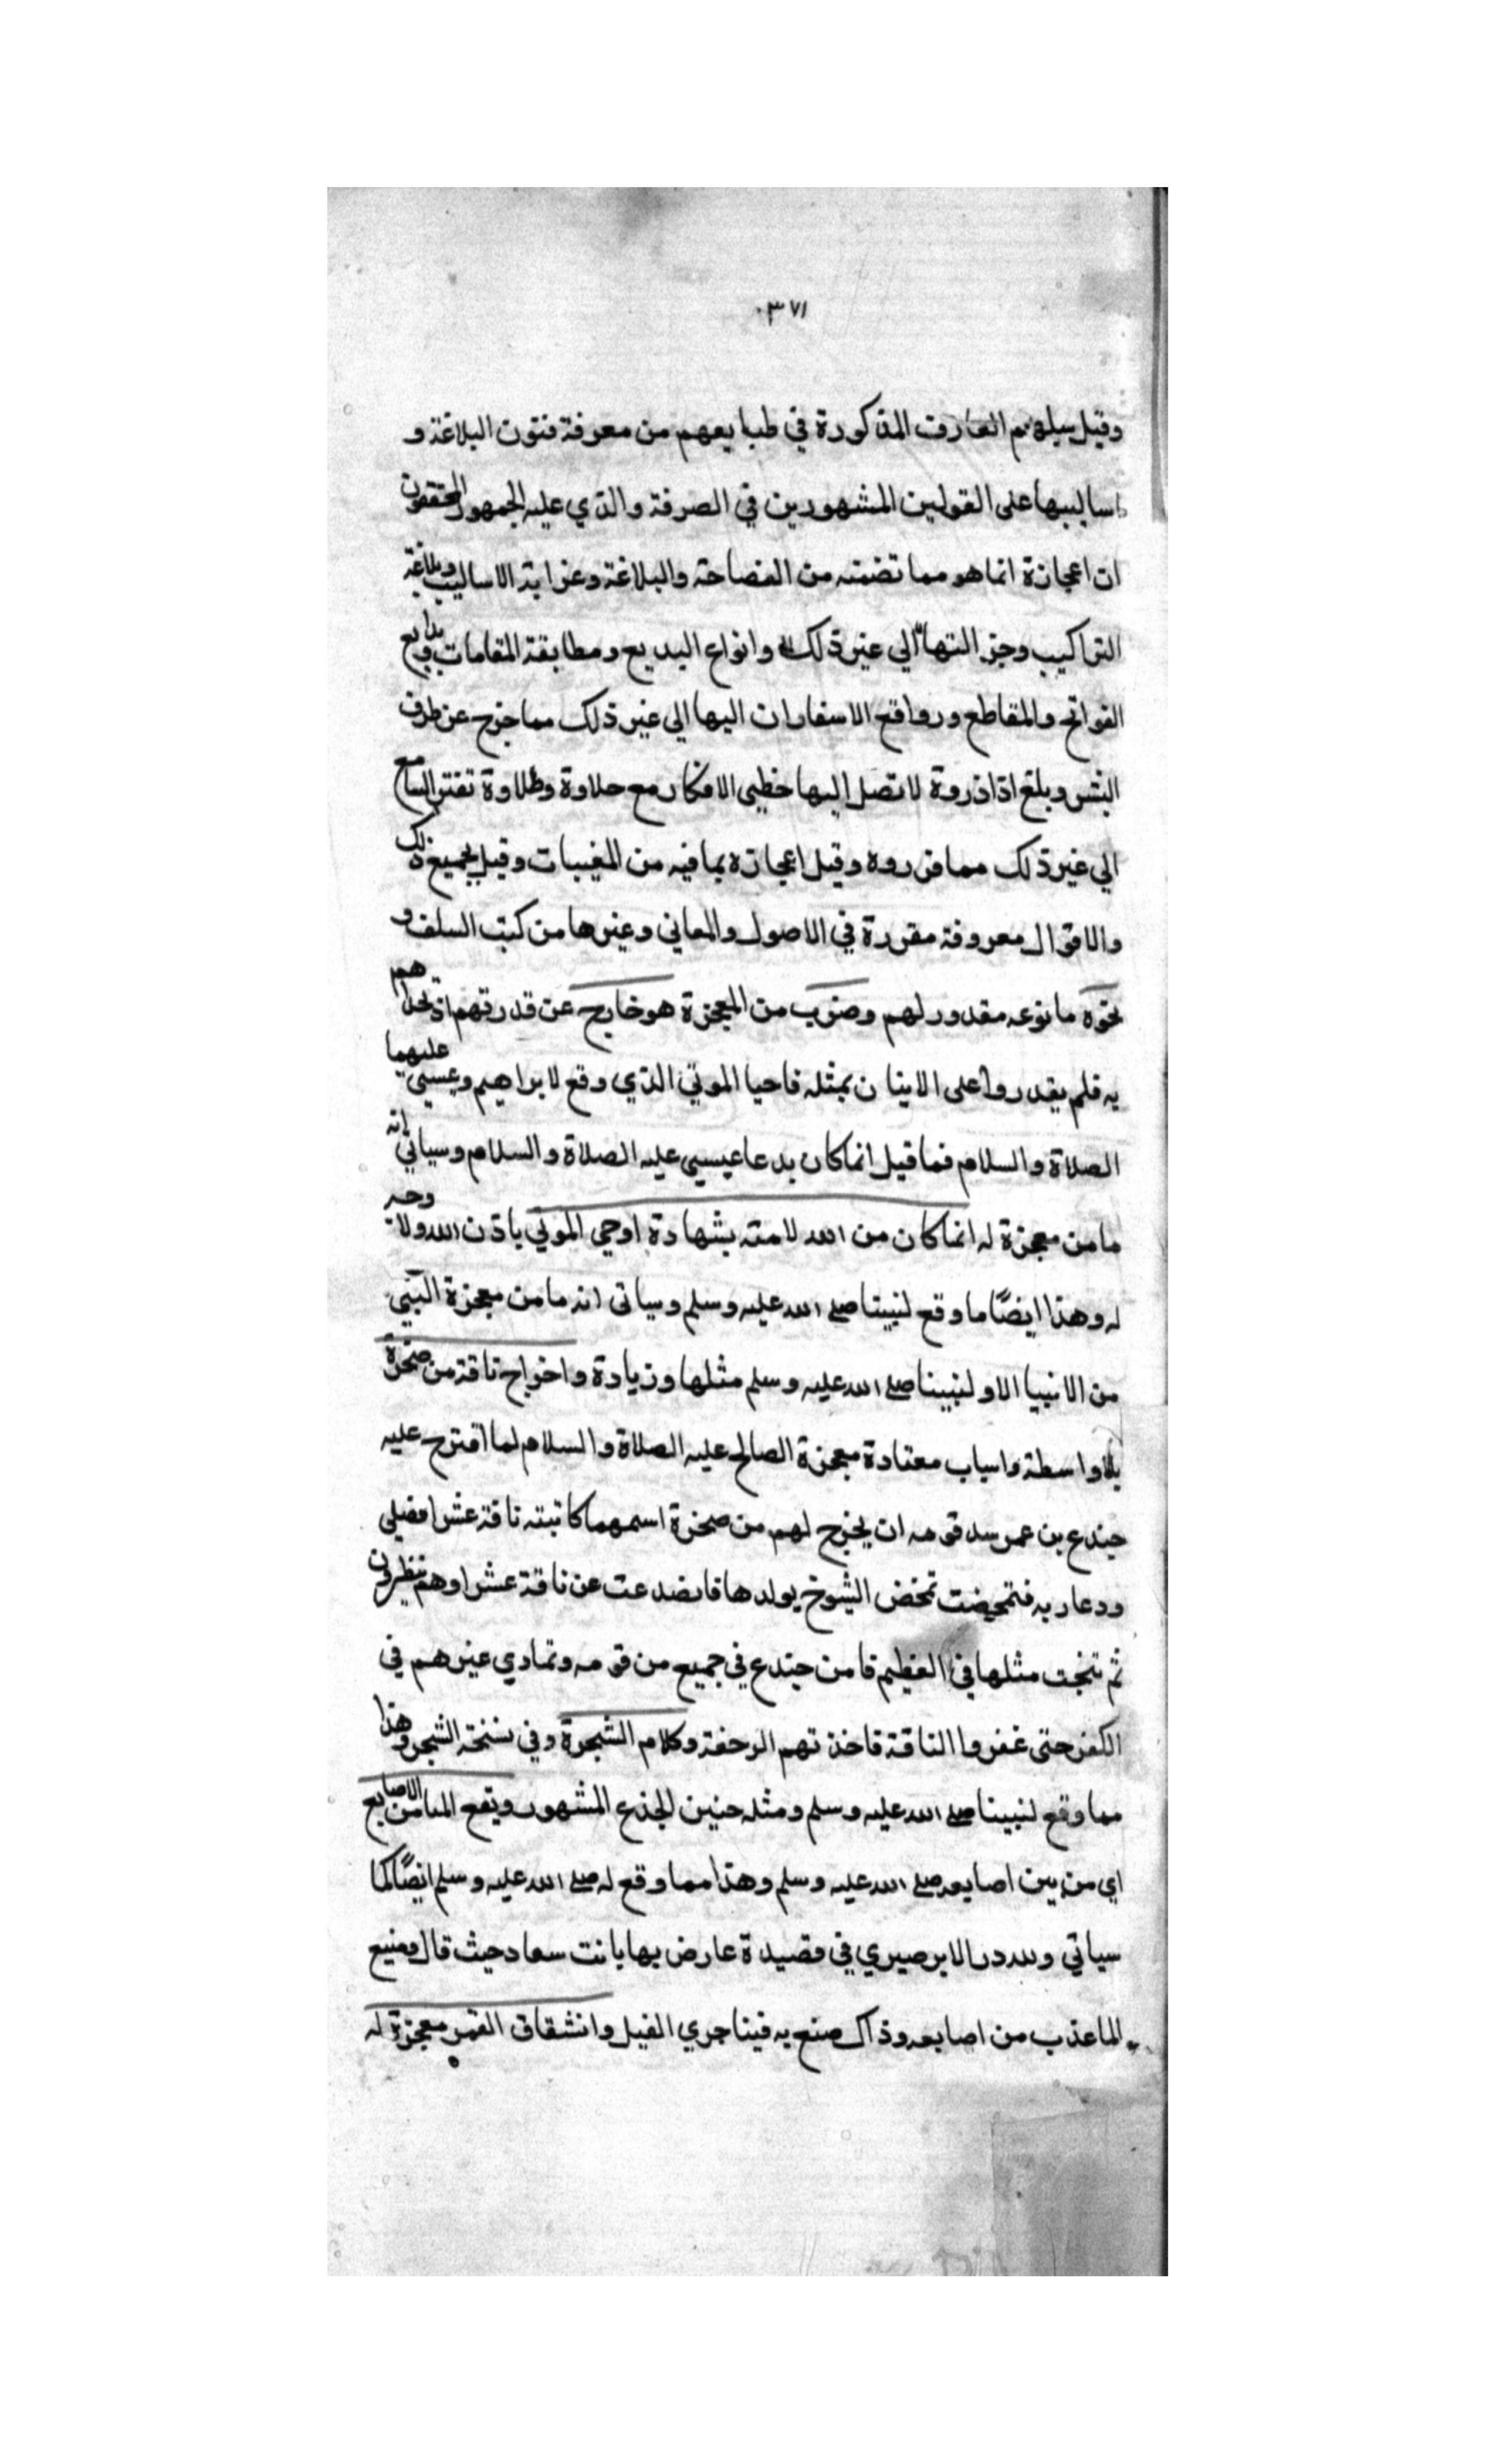 ٣٧١
وقيل سلبهم المعارف المذكورة في طبايعهم من معرفة فنون البلاغة و
اساليبها على القولين المشهورين في الصرفة والذي عليه الجمهور المحققون
ان اعجازة انما هو مما تضمنه من الفصاحة والبلاغة وغرابة الاساليب وبلاغة
التراكيب وجزالتها الي غير ذلك وانواع البديع ومطابقة المقامات وبدايع
الفواتح والمقاطع وروائع الاسفارات اليها الي غير ذلك مما خرج عن طرف
البشر وبلغ اذا ذروة لا تصل اليها خطي الافكار مع حلاوة وطلاوة تفتن السامع
الي غير ذلك مما قرروه وقيل اعجازه بما فيه من المغيبات وقيل بجميع ذلك
والاقوال معروفة مقررة في الاصول والمعاني وغيرها من كتب السلف و
نحوه ما نوعه مقدور لهم وضرب من المعجزة هو خارج عن قدرتهم اذ تحداهم
به فلم يقدروا على الاتيان بمثله فاحيا الموتي الذي وقع لابراهيم وعيسي عليهما
الصلاة والسلام فما قيل انما كان بدعا عيسي عليه الصلاة والسلام وسياتي انه
ما من معجزة له انما كان من الله لامته بشهادة اوحي الموتي باذن الله ولا وجه
له وهذا ايضًا ما وقع لنبينا صلي الله عليه وسلم وسياتى انه ما من معجزة النبي
من الانبيا الا ولنبينا صلي الله عليه وسلم مثلها وزيادة واخراج ناقة من صخرة
بلا واسطة واسباب معتادة معجزة الصالح عليه الصلاة والسلام لما اقترح عليه
جندع بن عمر سد قومه ان يخرج لهم من صخرة اسمهما كاتبته ناقة عشرا فصلي
ودعا ربه فتمخضت تمخض الشيوخ بولدها فانصدعت عن ناقة عشرا وهم ينظرون
ثم نتجت مثلها في العظيم فامن جندع في جميع من قومه وتمادي غيرهم في
الكفر حتى عقروا الناقة فاخذتهم الرجفة وكلام الشجرة وفي نسخة الشجر وهذا
مما وقع لنبينا صلي الله عليه وسلم ومثله حنين الجذع المشهور ونبع الما من الاصابع
اي من بين اصابعه صلي الله عليه وسلم وهذا مما وقع له صلي الله عليه وسلم ايضًا كما
سياتي ولله در الابرصيري في قصيدة عارض بها بانت سعاد حيث قال ومنبع
الما عذب من اصابعه وذاك صنع به فينا جري الفيل وانشقاق القمر معجزة له